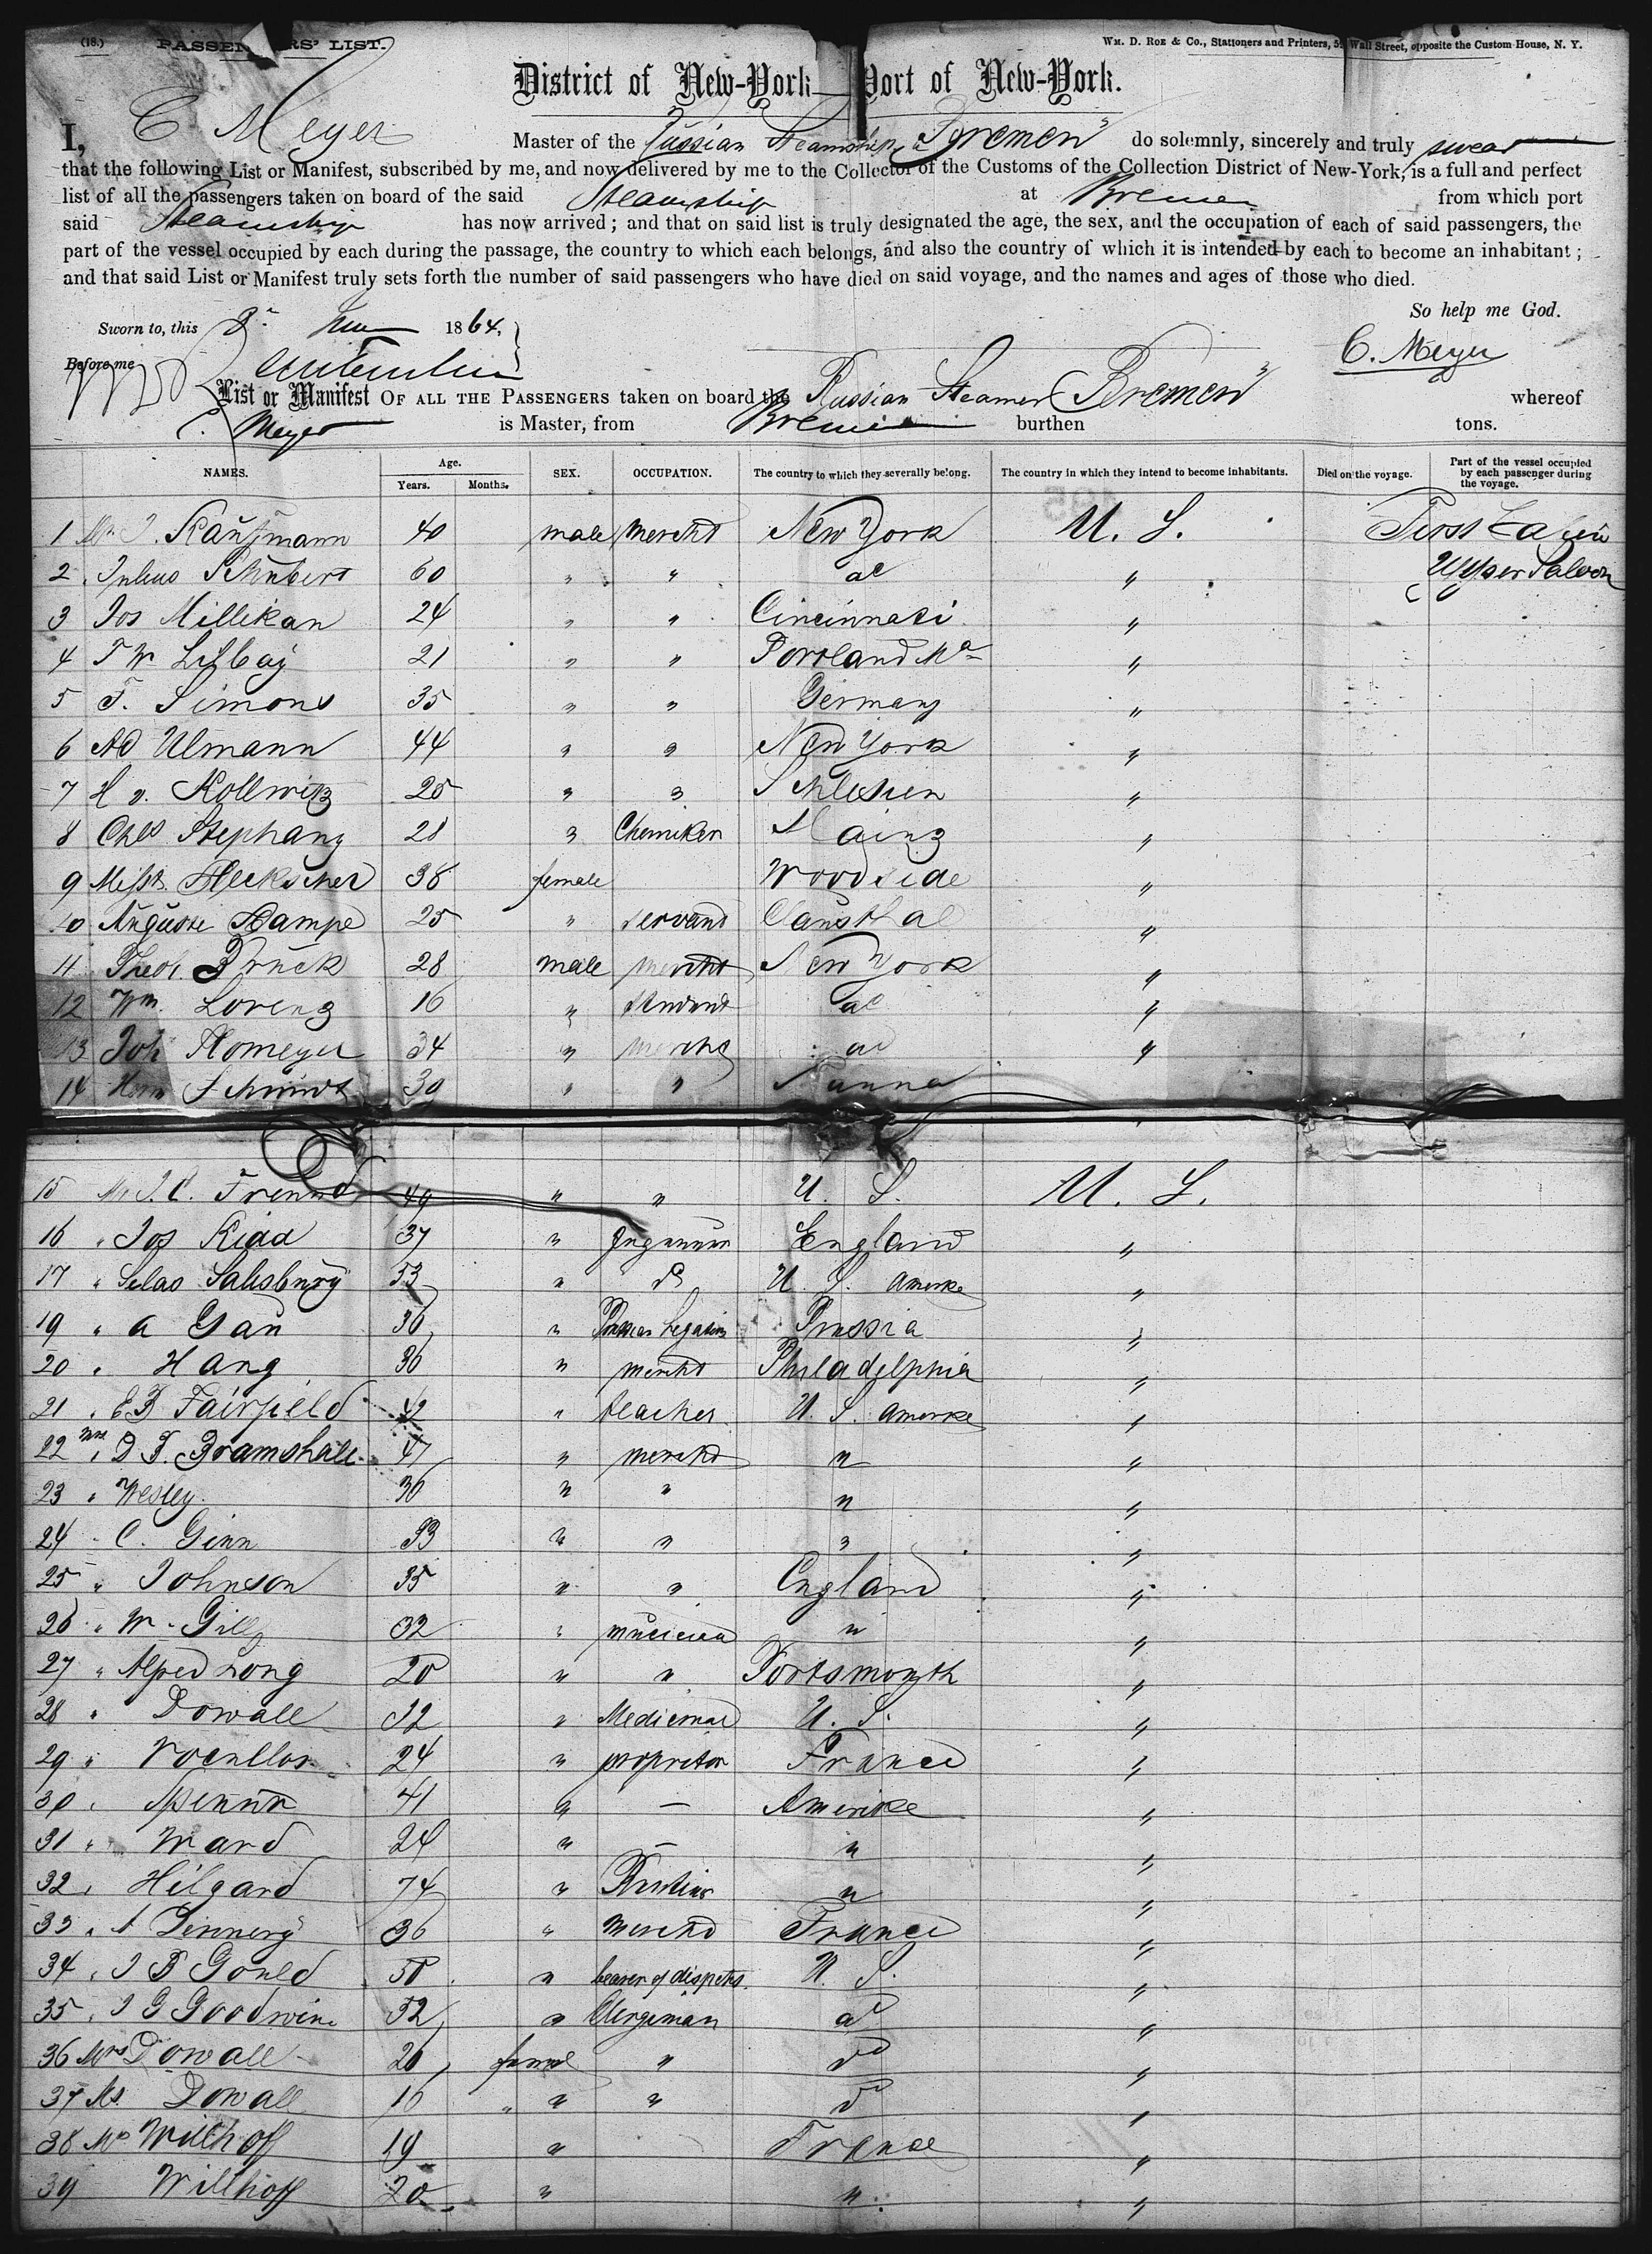 (18.) PASSENGERS' LIST. Wm. D. Roe & Co., Stationers and Printers, Wall Street, opposite the Custom House, N. Y.
District of New-York—Port of New-York.
I, C Meyer Master of the Russian Steamship "Bremen" do solemnly, sincerely and truly swear
that the following List or Manifest, subscribed by me, and now delivered by me to the Collector of the Customs of the Collection District of New-York, is a full and perfect
list of all the passengers taken on board of the said Steamship at Bremen from which port
said Steamship has now arrived; and that on said list is truly designated the age, the sex, and the occupation of each of said passengers, the
part of the vessel occupied by each during the passage, the country to which each belongs, and also the country of which it is intended by each to become an inhabitant;
and that said List or Manifest truly sets forth the number of said passengers who have died on said voyage, and the names and ages of those who died.
So help me God.
Sworn to, this 1864.
C. Meyer
Before me
List or Manifest OF ALL THE PASSENGERS taken on board the Russian Steamer "Bremen" whereof
C. Meyer is Master, from Bremen burthen tons.
NAMES. Age. Years. Months. SEX. OCCUPATION. The country to which they severally belong. The country in which they intend to become inhabitants. Died on the voyage. Part of the vessel occupied by each passenger during the voyage.
1 Mr. J. Kaufmann 40 male mercht New York U. S. First Cabin
2 Julius Schubert 60 " " do " Upper Saloon
3 Jos Millikan 24 " " Cincinnati "
4 T W 21 " " Portland Me "
5 F. Simons 35 " " Germany "
6 Ad Ulmann 44 " " New York "
7 H v. Kollwitz 25 " " Schlesien "
8 Chs Stephany 28 " Chemiker Mainz "
9 Heckscher 38 female Woodside "
10 Auguste Hampe 25 " servand Clausthal "
11 Theod. Brück 28 male mercht New York "
12 Wm. Lorenz 16 " student do "
13 Joh Homeyer 34 " mercht do "
14 Herm Schmidt 39 " " "
15 Mr J. C. Freund 49 " " U. S. U. S.
16 " Jos Kidd 37 " England "
17 " Silas Salisbury 53 " do U. S. Amerike "
19 " A Gau 36 " Prussian Legation Prussia "
20 " Hang 36 " mercht Philadelphia "
21 " E B Fairfield 42 " teacher U. S. Amerike "
22 " D T. Bramshall 47 " mercht " "
23 " Wesley 36 " " " "
24 " C. Ginn 33 " " " "
25 " Johnson 35 " " England "
26 " W. Gilly 32 " musician " "
27 " Alfred Long 20 " " Portsmouth "
28 " Dowall 32 " Medicinae U. S. "
29 " 24 " propritor France "
30 " 41 " — Amerike "
31 " Ward 24 " — " "
32 " Hilgard 74 " " "
33 " A Dennery 36 " mercht France "
34 " J B Gould 50 " bearer of dispchs U. S. "
35 " J G Goodwin 52 " Clergiman do "
36 Mrs Dowall 26 female " do "
37 Ms Dowall 16 " " do "
38 Ms Willhoff 19 " France "
39 Willhoff 20 " " "